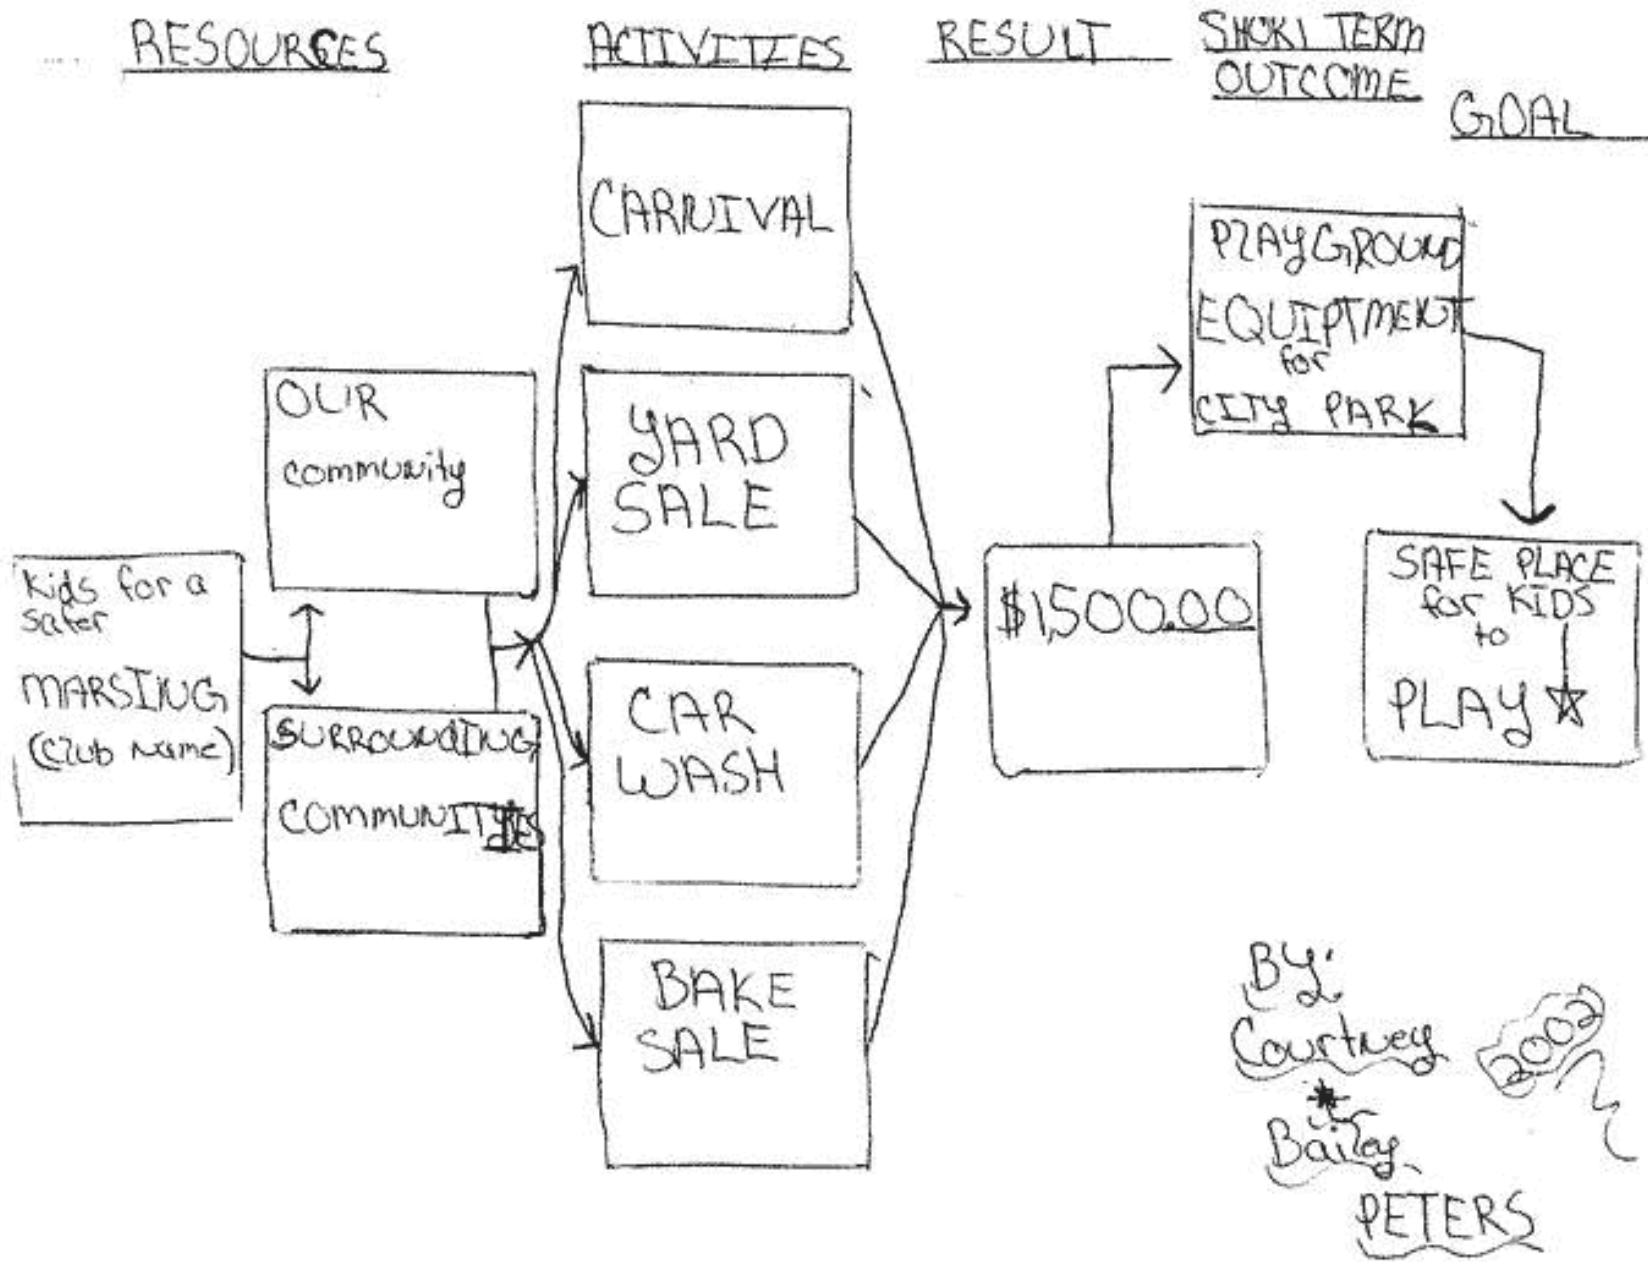 RESOURCES
ACTIVITIES
RESULT
SHORT TERM
OUTCOME
GOAL
Kids for a
safer
MARSING
(Club Name)
OUR
community
SURROUNDING
COMMUNITIES
CARNIVAL
YARD
SALE
CAR
WASH
BAKE
SALE
$1,500.00
PLAYGROUND
EQUIPTMENT
for
CITY PARK
SAFE PLACE
for KIDS
to
PLAY
BY:
Courtney
Bailey
PETERS
2002